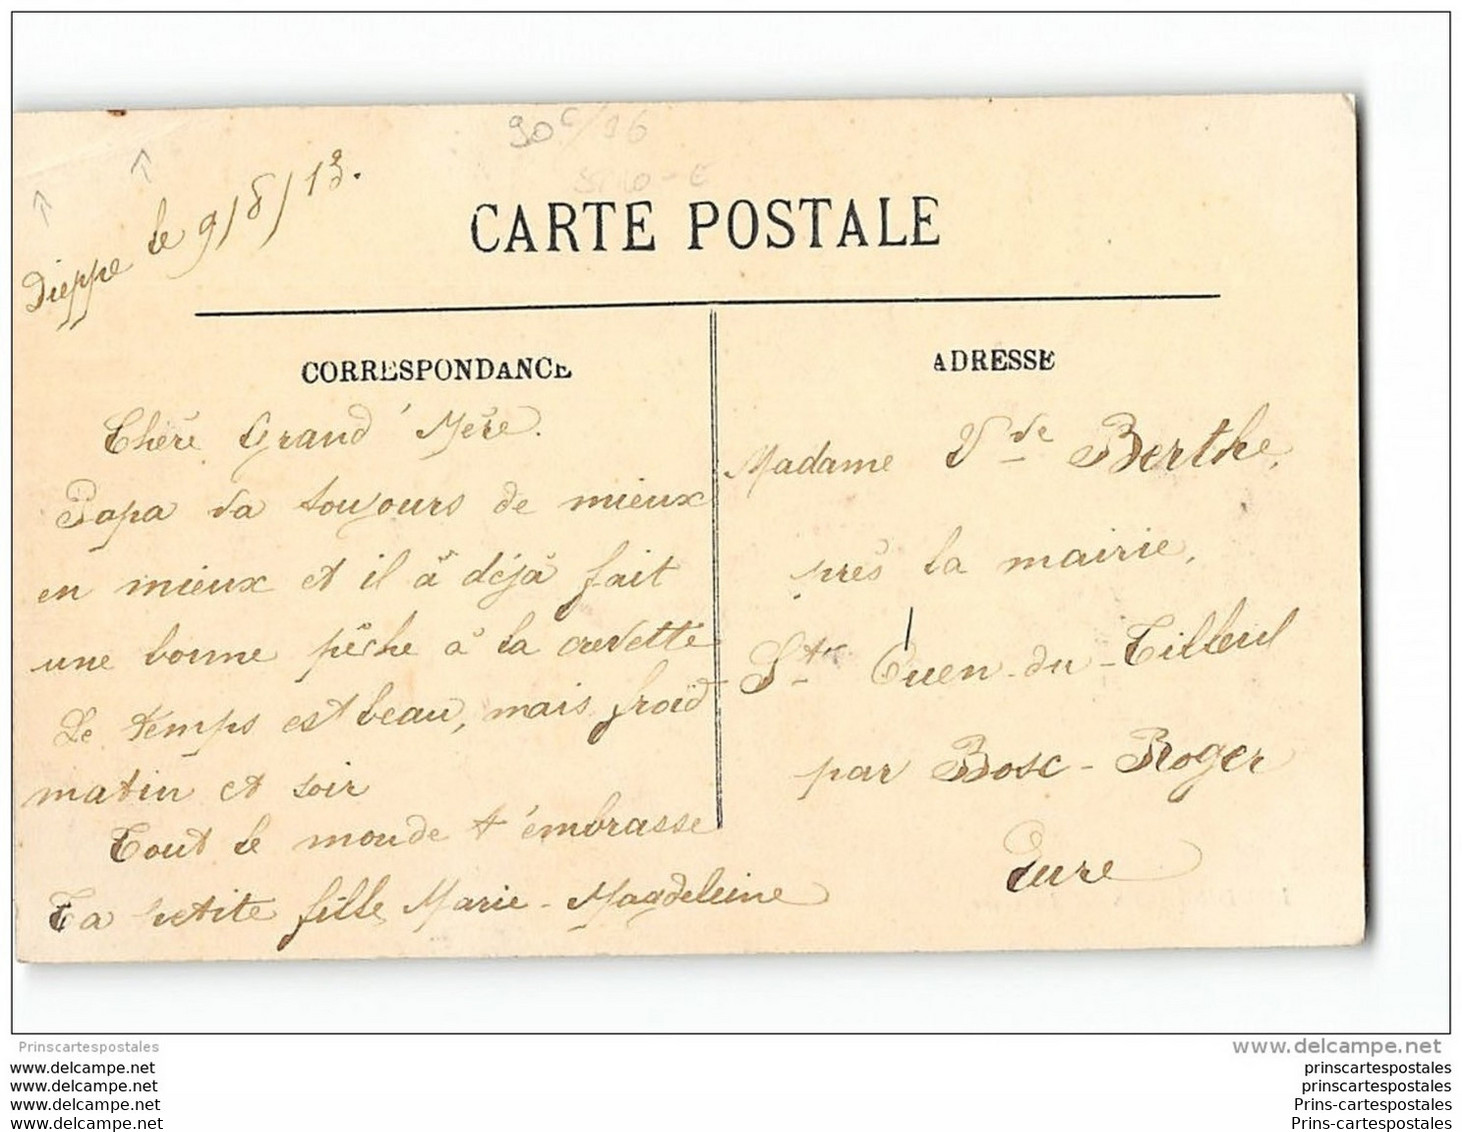 Dieppe le 9/8/13.
CARTE POSTALE
CORRESPONDANCE
Chère Grand'Mère.
Papa va toujours de mieux
en mieux et il à déjà fait
une bonne pêche à la crevette
Le temps est beau, mais froid
matin et soir
Tout le monde t'embrasse
Ta petite fille, Marie-Magdeleine
ADRESSE
Madame Vve Berthe,
près la mairie,
St Ouen-du-Tilleul
par Bosc-Roger
Eure
Prinscartespostales
www.delcampe.net
www.delcampe.net
www.delcampe.net
www.delcampe.net
www.delcampe.net
prinscartespostales
prinscartespostales
Prins-cartespostales
Prins-cartespostales